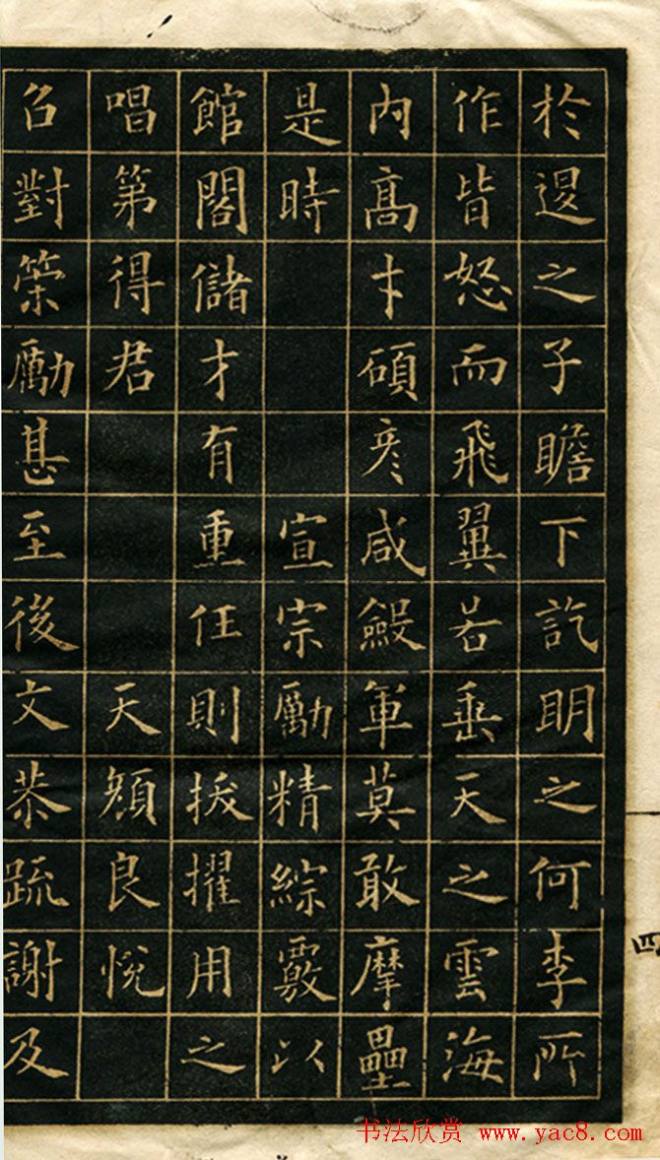 於退之子瞻下訖明之何李所
作皆怒而飛翼若垂天之雲海
內高才碩彥咸斂軍莫敢摩壘
是時宣宗勵精綜覈以
館閣儲才有重任則拔擢用之
唱第得君天顏良悅
召對策勵甚至後文恭疏謝及
四
书法欣赏 www.yac8.com